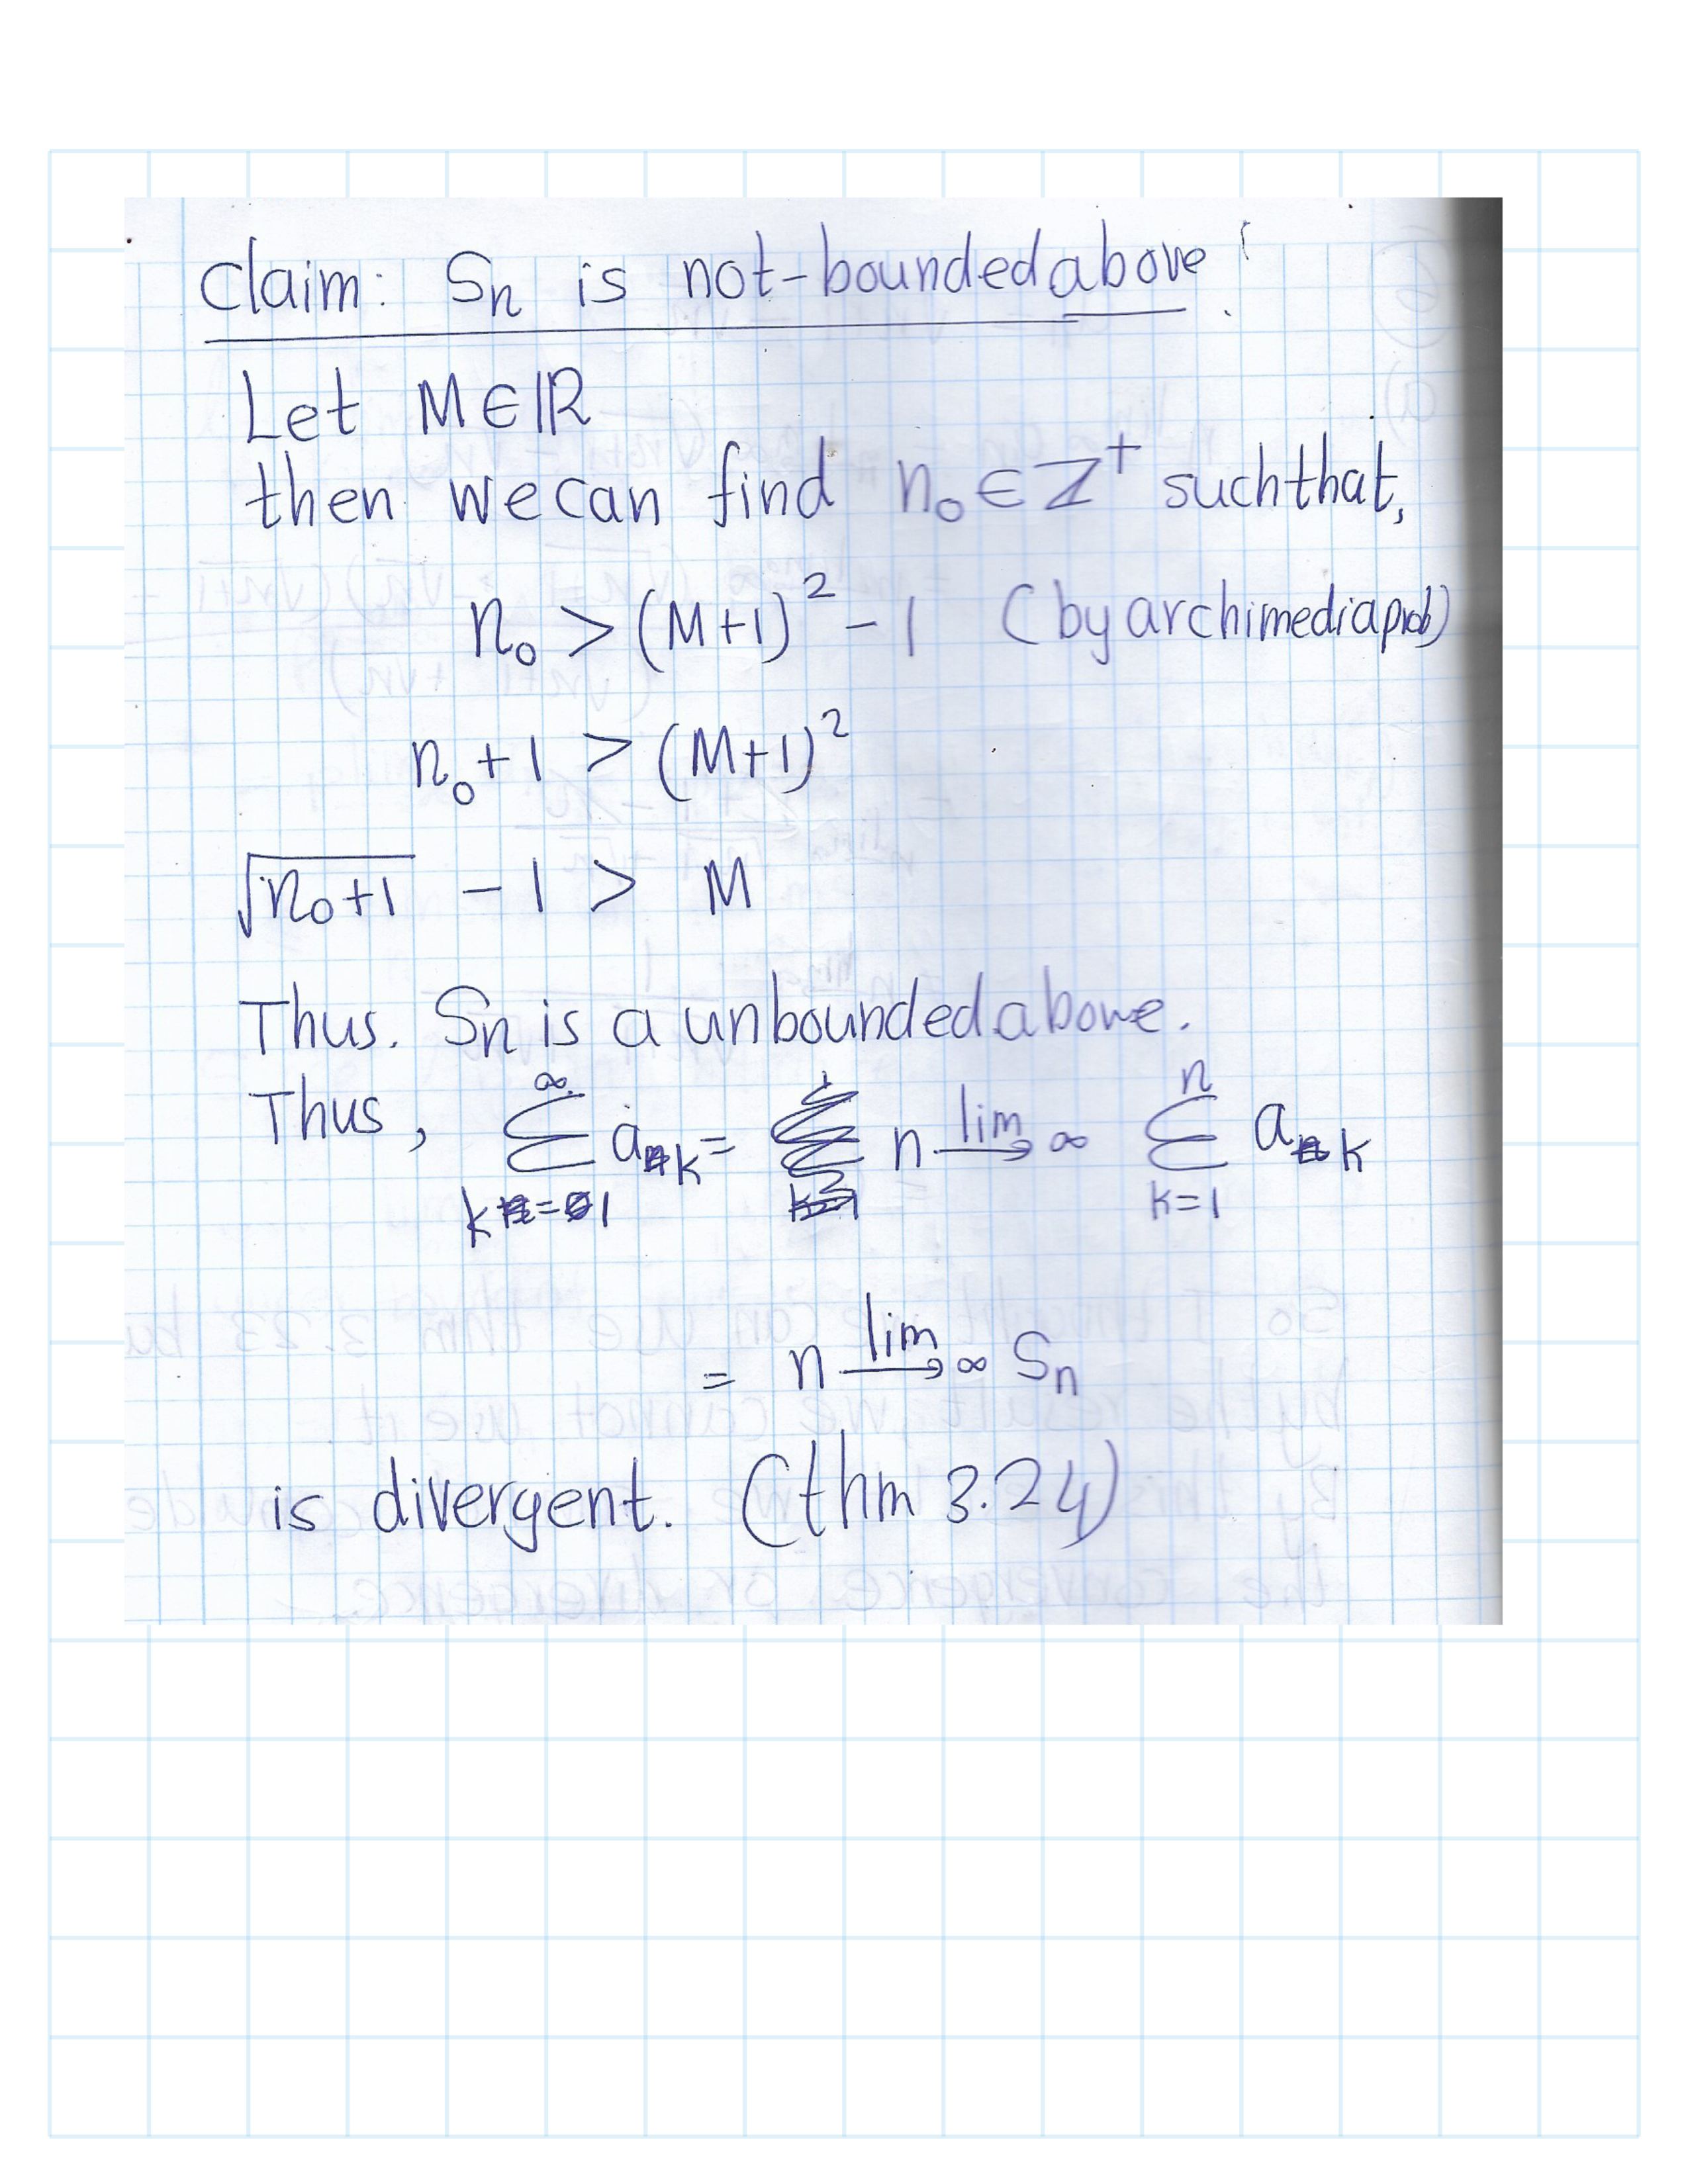 Claim: Sn is not-bounded above!
Let M∈ℝ
then we can find n₀∈Z⁺ such that,
n₀ > (M+1)² - 1 (by archimedia prob)
n₀+1 > (M+1)²
√(n₀+1) - 1 > M
Thus. Sn is a unbounded above.
Thus, ∑_{k=1}^{∞} a_k = lim_{n→∞} ∑_{k=1}^{n} a_k
= lim_{n→∞} Sn
is divergent. (thm 3.24)